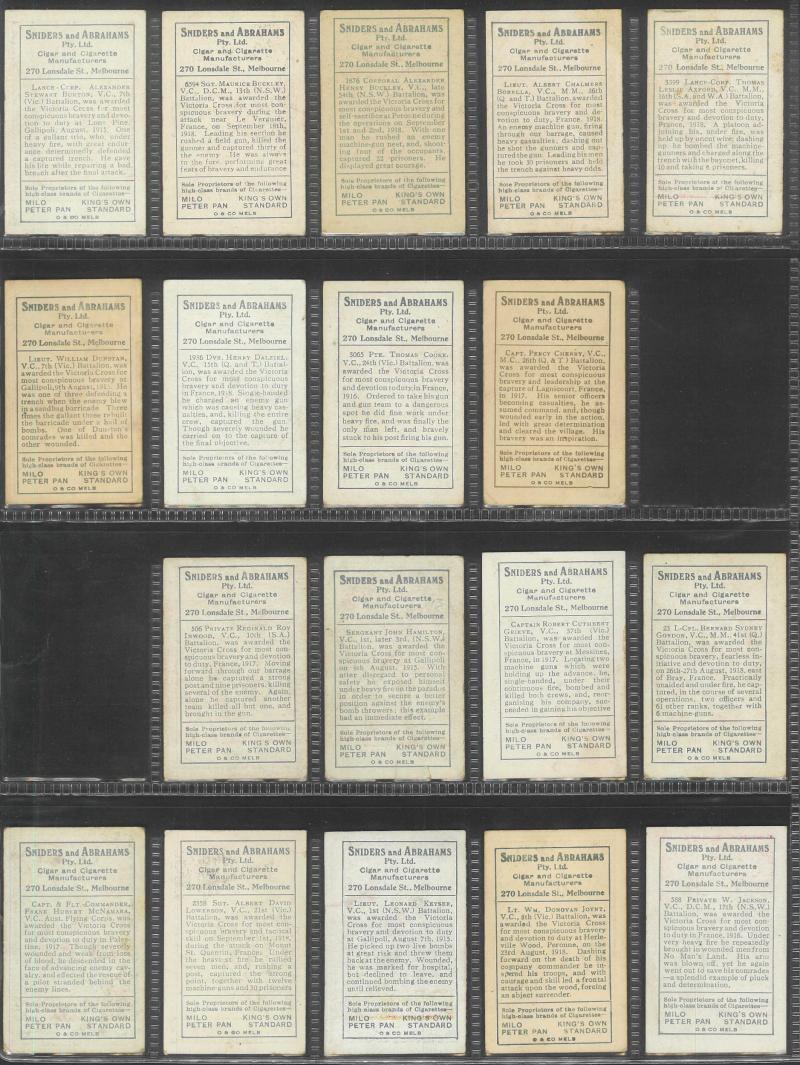 SNIDERS and ABRAHAMS
Pty. Ltd.
Cigar and Cigarette
Manufacturers
270 Lonsdale St., Melbourne
LANCE-CORP. ALEXANDER
STEWART BURTON, V.C., 7th
(Vic.) Battalion, was awarded
the Victoria Cross for most
conspicuous bravery and devo-
tion to duty at Lone Pine,
Gallipoli, August, 1915. One
of a gallant trio, who, under
heavy fire, with great endur-
ance determinedly defended
a captured trench. He gave
his life while repairing a bad
breach after the final attack.
Sole Proprietors of the following
high-class brands of Cigarettes—
MILO KING'S OWN
PETER PAN STANDARD
O & CO MELB
SNIDERS and ABRAHAMS
Pty. Ltd.
Cigar and Cigarette
Manufacturers
270 Lonsdale St., Melbourne
6594 SGT. MAURICE BUCKLEY,
V.C., D.C.M., 13th (N.S.W.)
Battalion, was awarded the
Victoria Cross for most con-
spicuous bravery during the
attack near Le Verguier,
France, on September 18th,
1918. Leading his section he
rushed a field gun, killed the
gunner and captured thirty of
the enemy. He was always
to the fore. Contains great
feats of bravery and endurance
Sole Proprietors of the following
high-class brands of Cigarettes—
MILO KING'S OWN
PETER PAN STANDARD
O & CO MELB
SNIDERS and ABRAHAMS
Pty. Ltd.
Cigar and Cigarette
Manufacturers
270 Lonsdale St., Melbourne
1876 CORPORAL ALEXANDER
HENRY BUCKLEY, V.C., late
54th (N.S.W.) Battalion, was
awarded the Victoria Cross for
most conspicuous bravery and
self-sacrifice at Peronne during
the operations on September
1st and 2nd, 1918. With one
man he rushed an enemy
machine-gun nest, and, shoot-
ing four of the occupants,
captured 22 prisoners. He
displayed great courage.
Sole Proprietors of the following
high-class brands of Cigarettes—
MILO KING'S OWN
PETER PAN STANDARD
O & CO MELB
SNIDERS and ABRAHAMS
Pty. Ltd.
Cigar and Cigarette
Manufacturers
270 Lonsdale St., Melbourne
LIEUT. ALBERT CHALMERS
BORRELLA, V.C., M.M., 26th
(Q. and T.) Battalion, was
awarded the Victoria Cross for
most conspicuous bravery and
devotion to duty, France, 1918.
An enemy machine gun, firing
through our barrage, caused
heavy casualties; dashing out
he shot the gunners and cap-
tured the gun. Leading his men
he took 30 prisoners and held
the trench against heavy odds.
Sole Proprietors of the following
high-class brands of Cigarettes—
MILO KING'S OWN
PETER PAN STANDARD
O & CO MELB
SNIDERS and ABRAHAMS
Pty. Ltd.
Cigar and Cigarette
Manufacturers
270 Lonsdale St., Melbourne
3399 LANCE-CORP. THOMAS
LESLIE AXFORD, V.C., M.M.,
16th (S.A. and W.A.) Battalion,
was awarded the Victoria Cross
for most conspicuous bravery
and devotion to duty,
France, 1918. A platoon ad-
joining his, under fire, was
held up by uncut wire; dashing
up, he bombed the machine-
gunners and charged along the
trench with the bayonet, killing
10 and taking 6 prisoners.
Sole Proprietors of the following
high-class brands of Cigarettes—
MILO KING'S OWN
PETER PAN STANDARD
O & CO MELB
SNIDERS and ABRAHAMS
Pty. Ltd.
Cigar and Cigarette
Manufacturers
270 Lonsdale St., Melbourne
LIEUT. WILLIAM DUNSTAN,
V.C., 7th (Vic.) Battalion, was
awarded the Victoria Cross for
most conspicuous bravery at
Gallipoli, 9th August, 1915. He
was one of three defending a
trench when the enemy blew
in a sandbag barricade. Three
times the gallant three rebuilt
the barricade under a hail of
bombs. One of Dunstan's
comrades was killed and the
other wounded.
Sole Proprietors of the following
high-class brands of Cigarettes—
MILO KING'S OWN
PETER PAN STANDARD
O & CO MELB
SNIDERS and ABRAHAMS
Pty. Ltd.
Cigar and Cigarette
Manufacturers
270 Lonsdale St., Melbourne
1936 DVR. HENRY DALZIEL,
V.C., 15th (Q. and T.) Battal-
ion, was awarded the Victoria
Cross for most conspicuous
bravery and devotion to duty
in France, 1918. Single-handed
he charged an enemy gun
which was causing heavy cas-
ualties, and, killing the entire
crew, captured the gun.
Though severely wounded he
carried on to the capture of
the final objective.
Sole Proprietors of the following
high-class brands of Cigarettes—
MILO KING'S OWN
PETER PAN STANDARD
O & CO MELB
SNIDERS and ABRAHAMS
Pty. Ltd.
Cigar and Cigarette
Manufacturers
270 Lonsdale St., Melbourne
3055 PTE. THOMAS COOKE,
V.C., 24th (Vic.) Battalion, was
awarded the Victoria Cross
for most conspicuous bravery
and devotion to duty in France,
1916. Ordered to take his gun
and gun team to a dangerous
spot he did fine work under
heavy fire, and was finally the
only man left, and bravely
stuck to his post firing his gun.
Sole Proprietors of the following
high-class brands of Cigarettes—
MILO KING'S OWN
PETER PAN STANDARD
O & CO MELB
SNIDERS and ABRAHAMS
Pty. Ltd.
Cigar and Cigarette
Manufacturers
270 Lonsdale St., Melbourne
CAPT. PERCY CHERRY, V.C.,
M.C., 26th (Q. & T.) Battalion,
was awarded the Victoria
Cross for most conspicuous
bravery and leadership at the
capture of Lagnicourt, France,
in 1917. His senior officers
becoming casualties, he as-
sumed command, and, though
wounded early in the action,
led with great determination
and cleared the village. His
bravery was an inspiration.
Sole Proprietors of the following
high-class brands of Cigarettes—
MILO KING'S OWN
PETER PAN STANDARD
O & CO MELB
SNIDERS and ABRAHAMS
Pty. Ltd.
Cigar and Cigarette
Manufacturers
270 Lonsdale St., Melbourne
506 PRIVATE REGINALD ROY
INWOOD, V.C., 10th (S.A.)
Battalion, was awarded the
Victoria Cross for most con-
spicuous bravery and devotion
to duty, France, 1917. Moving
forward through our barrage
alone he captured a strong
post and nine prisoners, killing
several of the enemy. Again,
alone he captured another
team killed all but one, and
brought in the gun.
Sole Proprietors of the following
high-class brands of Cigarettes—
MILO KING'S OWN
PETER PAN STANDARD
O & CO MELB
SNIDERS and ABRAHAMS
Pty. Ltd.
Cigar and Cigarette
Manufacturers
270 Lonsdale St., Melbourne
SERGEANT JOHN HAMILTON,
V.C., 1st, later 3rd, (N.S.W.)
Battalion, was awarded the
Victoria Cross for most con-
spicuous bravery at Gallipoli
on 9th August, 1915. With
utter disregard to personal
safety he exposed himself
under heavy fire on the parados
in order to secure a better
position against the enemy's
bomb throwers; this example
had an immediate effect.
Sole Proprietors of the following
high-class brands of Cigarettes—
MILO KING'S OWN
PETER PAN STANDARD
O & CO MELB
SNIDERS and ABRAHAMS
Pty. Ltd.
Cigar and Cigarette
Manufacturers
270 Lonsdale St., Melbourne
CAPTAIN ROBERT CUTHBERT
GRIEVE, V.C., 37th (Vic.)
Battalion, was awarded the
Victoria Cross for most con-
spicuous bravery at Messines,
France, in 1917. Locating two
machine guns which were
holding up the advance, he,
single-handed, under their
continuous fire, bombed and
killed both crews, and, reor-
ganising his company, suc-
ceeded in gaining his objective
Sole Proprietors of the following
high-class brands of Cigarettes—
MILO KING'S OWN
PETER PAN STANDARD
O & CO MELB
SNIDERS and ABRAHAMS
Pty. Ltd.
Cigar and Cigarette
Manufacturers
270 Lonsdale St., Melbourne
23 L-CPL. BERNARD SYDNEY
GORDON, V.C., M.M., 41st (Q.)
Battalion, was awarded the
Victoria Cross for conspicuous
bravery, fearless in-
itiative and devotion to duty,
on 26th-27th August, 1918, east
of Bray, France. Practically
unaided and under fire, he cap-
tured, in the course of several
operations, two officers and
61 other ranks, together with
6 machine-guns.
Sole Proprietors of the following
high-class brands of Cigarettes—
MILO KING'S OWN
PETER PAN STANDARD
O & CO MELB
SNIDERS and ABRAHAMS
Pty. Ltd.
Cigar and Cigarette
Manufacturers
270 Lonsdale St., Melbourne
CAPT. & FLT. COMMANDER,
FRANK HUBERT MCNAMARA,
V.C., Aust. Flying Corps, was
awarded the Victoria Cross
for most conspicuous bravery
and devotion to duty in Pales-
tine, 1917. Though severely
wounded and weak from loss
of blood, he descended in the
face of advancing enemy cav-
alry, and effected the rescue of
a pilot stranded behind the
enemy lines.
Sole Proprietors of the following
high-class brands of Cigarettes—
MILO KING'S OWN
PETER PAN STANDARD
O & CO MELB
SNIDERS and ABRAHAMS
Pty. Ltd.
Cigar and Cigarette
Manufacturers
270 Lonsdale St., Melbourne
2358 SGT. ALBERT DAVID
LOWERSON, V.C., 21st (Vic.)
Battalion, was awarded the
Victoria Cross for most con-
spicuous bravery and tactical
skill on September 1st, 1918,
during the attack on Mount
St. Quentin, France. Under
the heaviest fire he rallied
seven men, and, rushing a
post, captured the strong
point, together with twelve
machine guns and 30 prisoners
Sole Proprietors of the following
high-class brands of Cigarettes—
MILO KING'S OWN
PETER PAN STANDARD
O & CO MELB
SNIDERS and ABRAHAMS
Pty. Ltd.
Cigar and Cigarette
Manufacturers
270 Lonsdale St., Melbourne
LIEUT. LEONARD KEYSER,
V.C., 1st (N.S.W.) Battalion,
was awarded the Victoria
Cross for most conspicuous
bravery and devotion to duty
at Gallipoli, August 7th, 1915.
He picked up two live bombs
at great risk and threw them
back at the enemy. Wounded,
he was marked for hospital,
but declined to leave, and
continued bombing the enemy
until relieved.
Sole Proprietors of the following
high-class brands of Cigarettes—
MILO KING'S OWN
PETER PAN STANDARD
O & CO MELB
SNIDERS and ABRAHAMS
Pty. Ltd.
Cigar and Cigarette
Manufacturers
270 Lonsdale St., Melbourne
LT. WM. DONOVAN JOYNT,
V.C., 8th (Vic.) Battalion, was
awarded the Victoria Cross
for most conspicuous bravery
and devotion to duty at Herle-
ville Wood, Peronne, on the
23rd August, 1918. Dashing
forward on the death of his
company commander he in-
spired his troops, and with
courage and skill led a frontal
attack upon the wood, forcing
an abject surrender.
Sole Proprietors of the following
high-class brands of Cigarettes—
MILO KING'S OWN
PETER PAN STANDARD
O & CO MELB
SNIDERS and ABRAHAMS
Pty. Ltd.
Cigar and Cigarette
Manufacturers
270 Lonsdale St., Melbourne
588 PRIVATE W. JACKSON,
V.C., D.C.M., 17th (N.S.W.)
Battalion, was awarded the
Victoria Cross for most con-
spicuous bravery and devotion
to duty in France in 1916. Under
very heavy fire he repeatedly
brought in wounded men from
No Man's Land. His arm
was blown off, yet he again
went out to save his comrades
—a splendid example of pluck
and determination.
Sole Proprietors of the following
high-class brands of Cigarettes—
MILO KING'S OWN
PETER PAN STANDARD
O & CO MELB